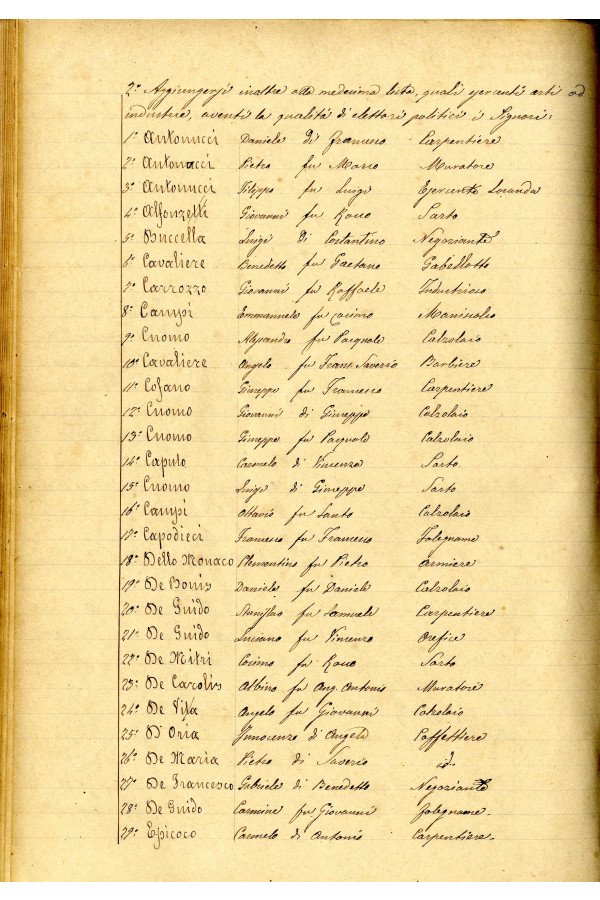 2° Aggiungersi inoltre alla medesima lista, quali esercenti arti ed
industrie, aventi la qualità di elettori politici i Signori:
1° Antonucci Daniele di Francesco Carpentiere
2° Antonacci Pietro fu Mario Muratore
3° Antonucci Filippo fu Luigi Esercente Locanda
4° Alfonzetti Giovanni fu Rocco Sarto
5° Buccella Luigi di Costantino Negoziante
6° Cavaliere Benedetto fu Gaetano Gabellotto
7° Carrozzo Giovanni fu Raffaele Industrioso
8° Campi Emmanuele fu Cosimo Maniscalco
9° Cuomo Alessandro fu Pasquale Calzolaio
10° Cavaliere Angelo fu Franc. Saverio Barbiere
11° Cofano Giuseppe fu Francesco Carpentiere
12° Cuomo Giovanni di Giuseppe Calzolaio
13° Cuomo Giuseppe fu Pasquale Calzolaio
14° Caputo Carmelo di Vincenzo Sarto
15° Cuomo Luigi di Giuseppe Sarto
16° Campi Ottavio fu Santo Calzolaio
17° Capodieci Francesco fu Francesco Falegname
18° Dello Monaco Clementino fu Pietro Armiere
19° De Bonis Daniele fu Daniele Calzolaio
20° De Guido Stanislao fu Samuele Carpentiere
21° De Guido Luciano fu Vincenzo Orefice
22° De Mitri Cosimo fu Rocco Sarto
23° De Carolis Albino fu Ang. Antonio Muratore
24° De Vita Angelo fu Giovanni Calzolaio
25° D'Oria Innocenzo di Angelo Caffettiere
26° De Maria Pietro di Saverio id.
27° De Francesco Gabriele di Benedetto Negoziante
28° De Guido Carmine fu Giovanni Falegname
29° Epicoco Carmelo di Antonio Carpentiere